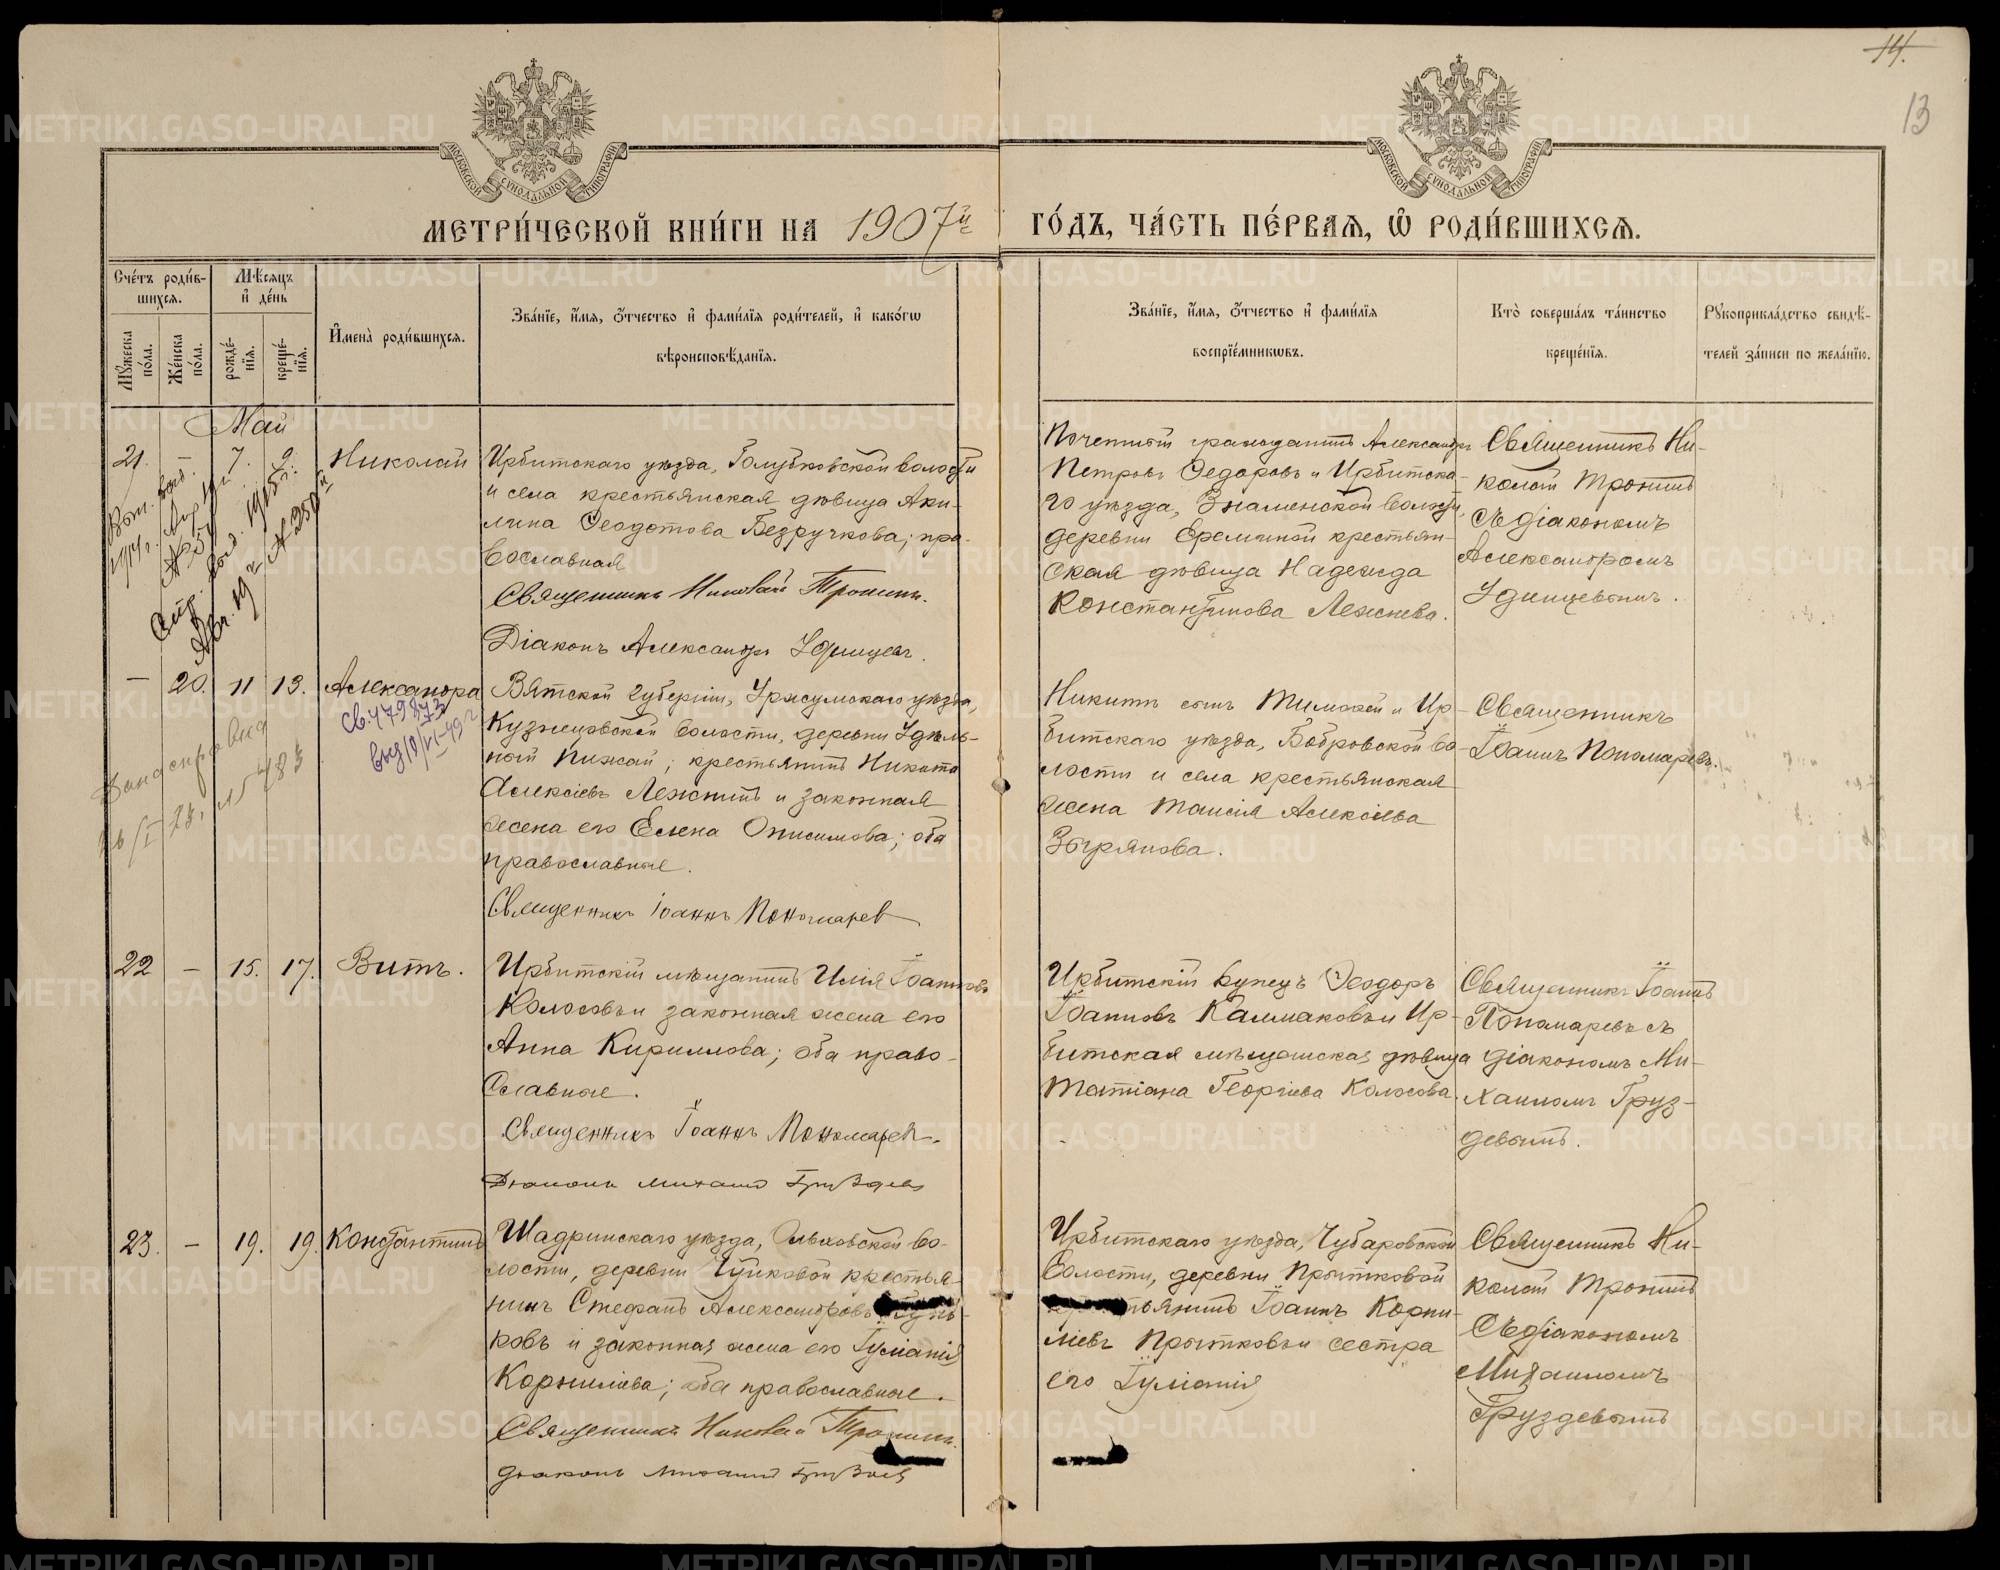 14.
13
МОСКОВСКОЙ СѴНОДАЛЬНОЙ ТИПОГРАФІИ
МОСКОВСКОЙ СѴНОДАЛЬНОЙ ТИПОГРАФІИ
МЕТРИ́ЧЕСКОЙ КНИ́ГИ НА 1907й
ГО́ДЪ, ЧА́СТЬ ПЕ́РВАѦ, Ѡ҆ РОДИ́ВШИХСѦ.
Сче́тъ роди́в-
шихсѧ.
Мꙋ́жеска по́ла.
Же́нска по́ла.
Мѣ́сѧцъ
и҆ де́нь
рожде́-
нїѧ.
креще́-
нїѧ.
И҆мена̀ роди́вшихсѧ.
Зва́нїе, и҆́мѧ, ѻ҆́тчество и҆ фами́лїѧ роди́телей, и҆ како́гѡ
вѣроисповѣ́данїѧ.
Зва́нїе, и҆́мѧ, ѻ҆́тчество и҆ фами́лїѧ
воспрїе́мникѡвъ.
Кто̀ соверша́лъ та́инство
креще́нїѧ.
Рꙋкоприкла́дство свидѣ́-
телей за́писи по жела́нїю.
Май
21. – 7. 9. Николай
Ирбитскаго уѣзда, Голубковской волости
и села крестьянская дѣвица Аки-
лина Ѳеодотова Безручкова; пра-
вославная
Священникъ Николай Тронинъ.
Діаконъ Александръ Удинцевъ.
Почетный гражданинъ Александръ
Петровъ Ѳедоровъ и Ирбитска-
го уѣзда, Знаменской волости,
деревни Ереминой крестьян-
ская дѣвица Надежда
Константинова Лежнева.
Священникъ Ни-
колай Тронинъ
съ діакономъ
Александромъ
Удинцевымъ.
1915 г.
– 20. 11 13. Александра
Вятской губерніи, Уржумскаго уѣзда,
Кузнецовской волости, деревни Удѣль-
ный Пижай; крестьянинъ Никита
Алексіевъ Лежнинъ и законная
жена его Елена Онисимова; оба
православные.
Священникъ Іоаннъ Пономарев
Никитъ сынъ Тимоѳей и Ир-
битскаго уѣзда, Бобровской во-
лости и села крестьянская
жена Таисія Алексіева
Зырянова.
Священникъ
Іоаннъ Пономаревъ.
22 – 15. 17. Витъ.
Ирбитскій мѣщанинъ Илія Іоанновъ
Колосовъ и законная жена его
Анна Кириллова; оба право-
славные.
Священникъ Іоаннъ Пономарев.
Діаконъ Михаилъ Груздевъ
Ирбитскій купецъ Ѳеодоръ
Іоанновъ Калмаковъ и Ир-
битская мѣщанская дѣвица
Татіана Георгіева Колосова.
Священникъ Іоаннъ
Пономаревъ съ
діакономъ Ми-
хаиломъ Груз-
девымъ.
23. – 19. 19. Константинъ
Шадринскаго уѣзда, Ольховской во-
лости, деревни Чупковой крестья-
нинъ Стефанъ Александровъ
ковъ и законная жена его Іуліанія
Корниліева; оба православные.
Священникъ Николай Тронинъ.
діаконъ Михаилъ Груздевъ
Ирбитскаго уѣзда, Чубаровской
волости, деревни Прытковой
Іоаннъ Корни-
ліевъ Прытковъ и сестра
его Іуліанія
Священникъ Ни-
колай Тронинъ
съ діакономъ
Михаиломъ
Груздевымъ